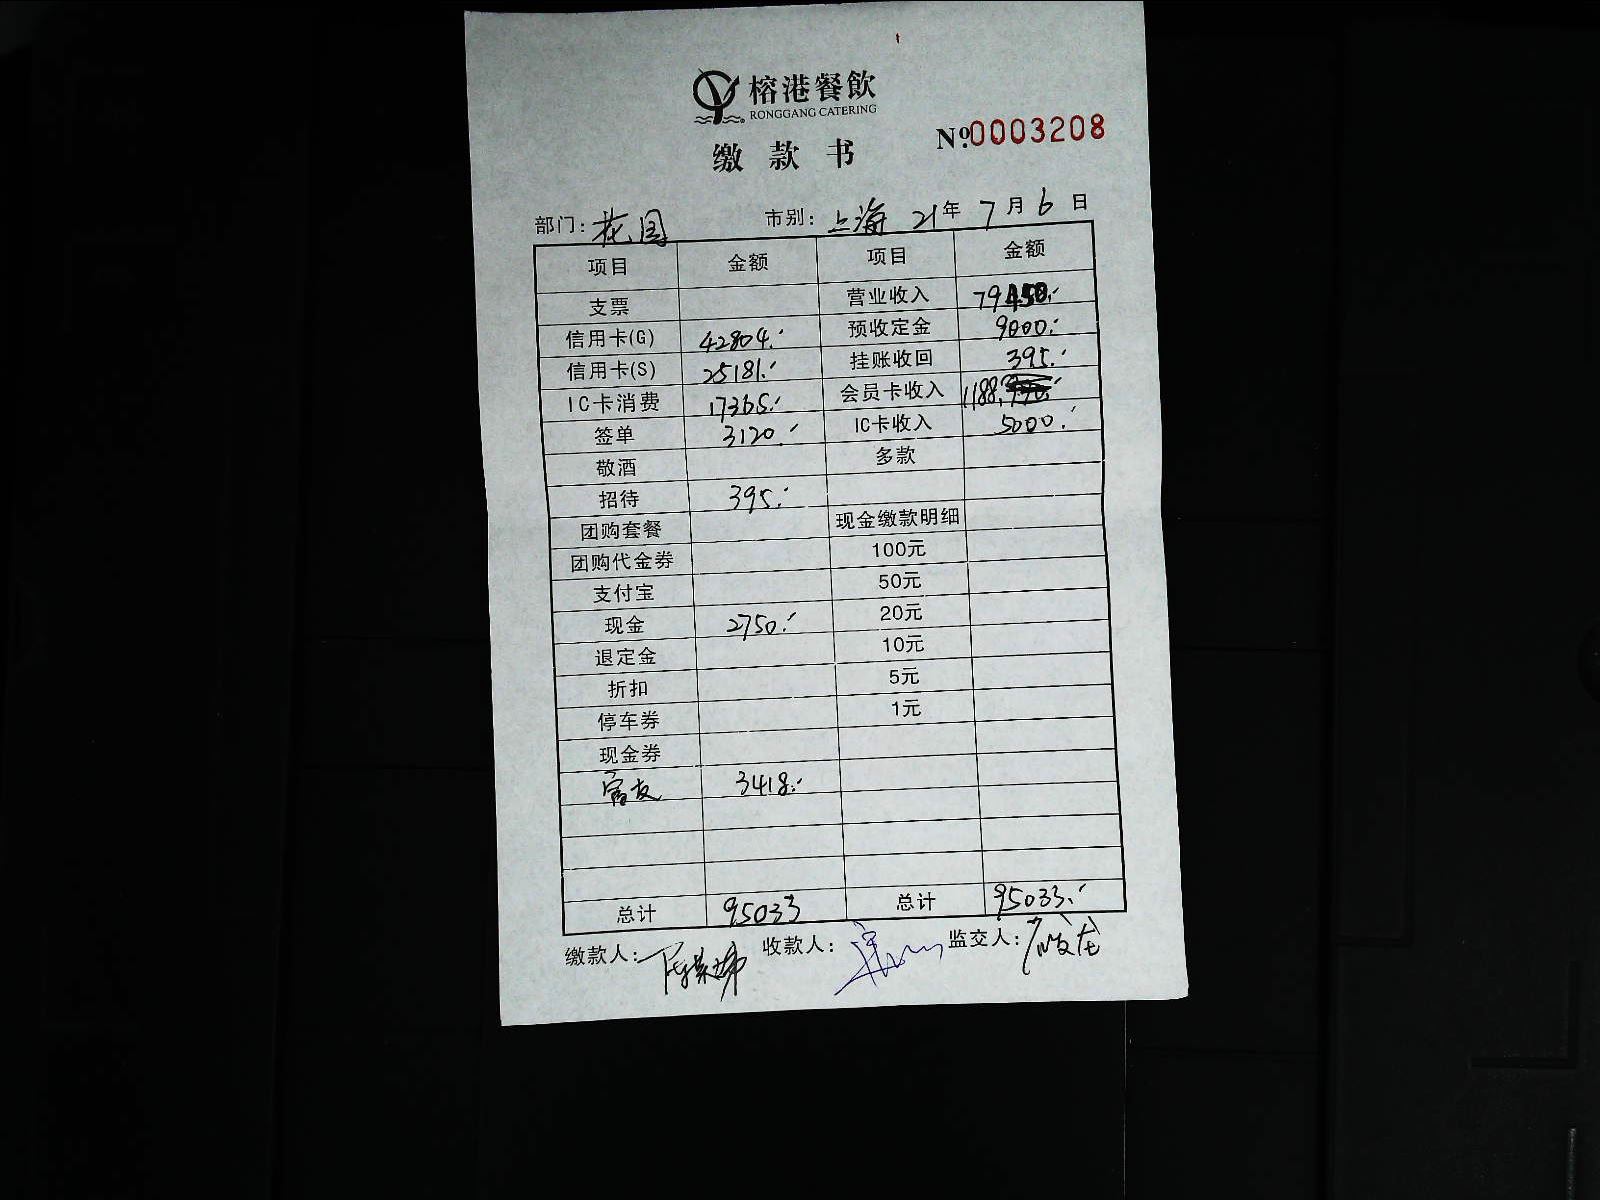 榕港餐飲
RONGGANG CATERING
№0003208
缴款书
部门：花园 市别：上海 21年7月6日
项目 金额 项目 金额
支票 营业收入 79450.-
信用卡(G) 42804.- 预收定金 9000.-
信用卡(S) 25181.- 挂账收回 395.-
IC卡消费 17365.- 会员卡收入 1188.
签单 3120.- IC卡收入 5000.-
敬酒 多款
招待 395.-
团购套餐 现金缴款明细
团购代金券 100元
支付宝 50元
现金 2750.- 20元
退定金 10元
折扣 5元
停车券 1元
现金券
富友 3418.-
总计 95033 总计 95033.-
缴款人： 收款人： 监交人：